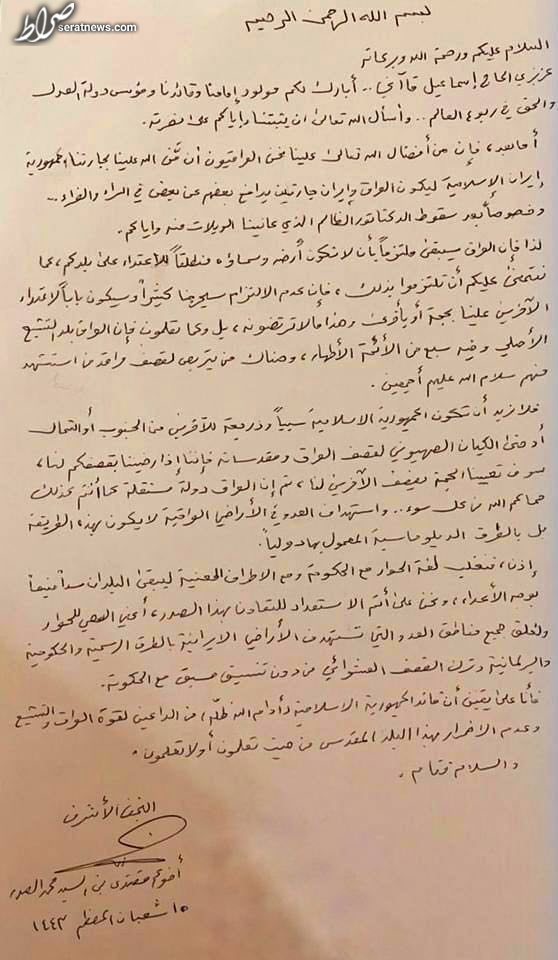 صراط
seratnews.com
بسم الله الرحمن الرحيم
السلام عليكم ورحمة الله وبركاته
عزيزي الحاج إسماعيل قاآني .. أبارك لكم مولود إمامنا وقائدنا ومؤسس دولة العدل
والحق في ربوع العالم .. وأسأل الله تعالى أن يثبتنا وإياكم على نصرته.
أما بعد، فإن من أفضال الله تعالى علينا نحن العراقيون أن مَنَّ الله علينا بجارتنا الجمهورية
إيران الإسلامية ليكون العراق وإيران جارتين يدافع بعضهم عن بعض في السراء والضراء ...
وخصوصاً بعد سقوط الدكتاتور الظالم الذي عانينا الويلات منه وإياكم.
لذا فإن العراق سيبقى ملتزماً بأن لا تكون أرضه وسماؤه منطلقاً للاعتداء على بلدكم، كما
نتمنى عليكم أن تلتزموا بذلك، فإن عدم الالتزام سيحرجنا كثيراً وسيكون باباً لاعتداء
الآخرين علينا بحجة أو بأخرى وهذا ما لا ترتضونه، بل وكما تعلمون فإن العراق بلد التشيع
الأصلي وفيه سبع من الأئمة الأطهار، وهناك من يتربص لقصف مراقد من استشهد
منهم سلام الله عليهم أجمعين.
فلا نريد أن تكون الجمهورية الاسلامية سبباً وذريعة للآخرين من الجنوب أو الشمال
أو حتى الكيان الصهيوني لقصف العراق ومقدساته فإننا إذا رضينا بقصفكم لنا،
سوف تعيينا الحجة بقصف الآخرين لنا، ثم إن العراق دولة مستقلة كما أنتم كذلك
حماكم الله من كل سوء .. واستهداف العدو في الأراضي العراقية لا يكون بهذه الطريقة
بل بالطرق الدبلوماسية المعمول بها دولياً.
إذن، فنغلب لغة الحوار مع الحكومة ومع الاطراف المعنية ليبقى البلدان سداً منيعاً
بوجه الأعداء، ونحن على أتم الاستعداد للتعاون بهذا الصدد، أعني السعي للحوار
ولغلق جميع مناطق العدو التي تستهدف الأراضي الايرانية بالطرق الرسمية والحكومية
والبرلمانية وترك القصف العشوائي من دون تنسيق مسبق مع الحكومة.
فأنا على يقين أن قائد الجمهورية الاسلامية (أدام الله ظله) من الداعين لقوة العراق والتشيع
وعدم الاضرار بهذا البلد المقدس من حيث تعلمون أو لا تعلمون.
والسلام ختام.
النجف الأشرف
أخوكم مقتدى بن السيد محمد الصدر
١٥ شعبان المعظم ١٤٤٣